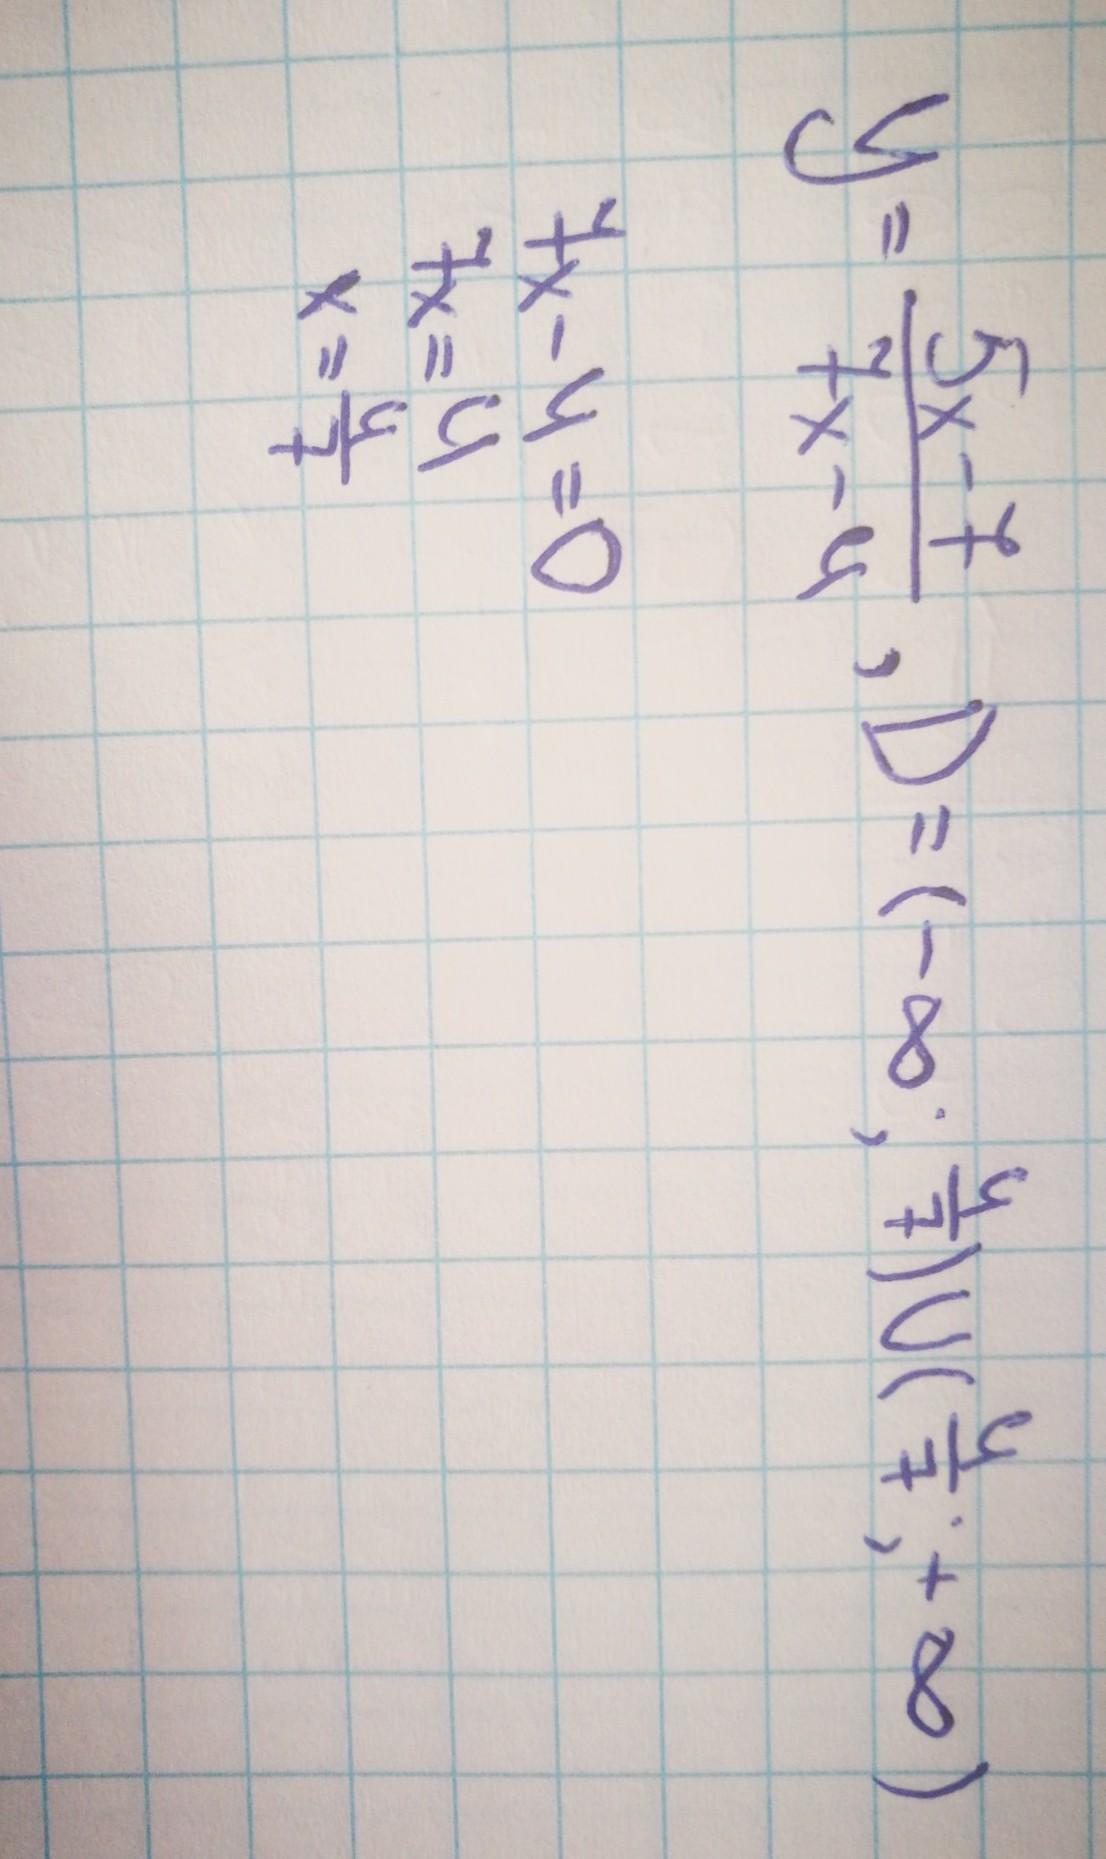 y = \frac{5x-7}{7x-4}, D = (-∞; \frac{4}{7}) ∪ (\frac{4}{7}; +∞)
7x - 4 = 0
7x = 4
x = \frac{4}{7}